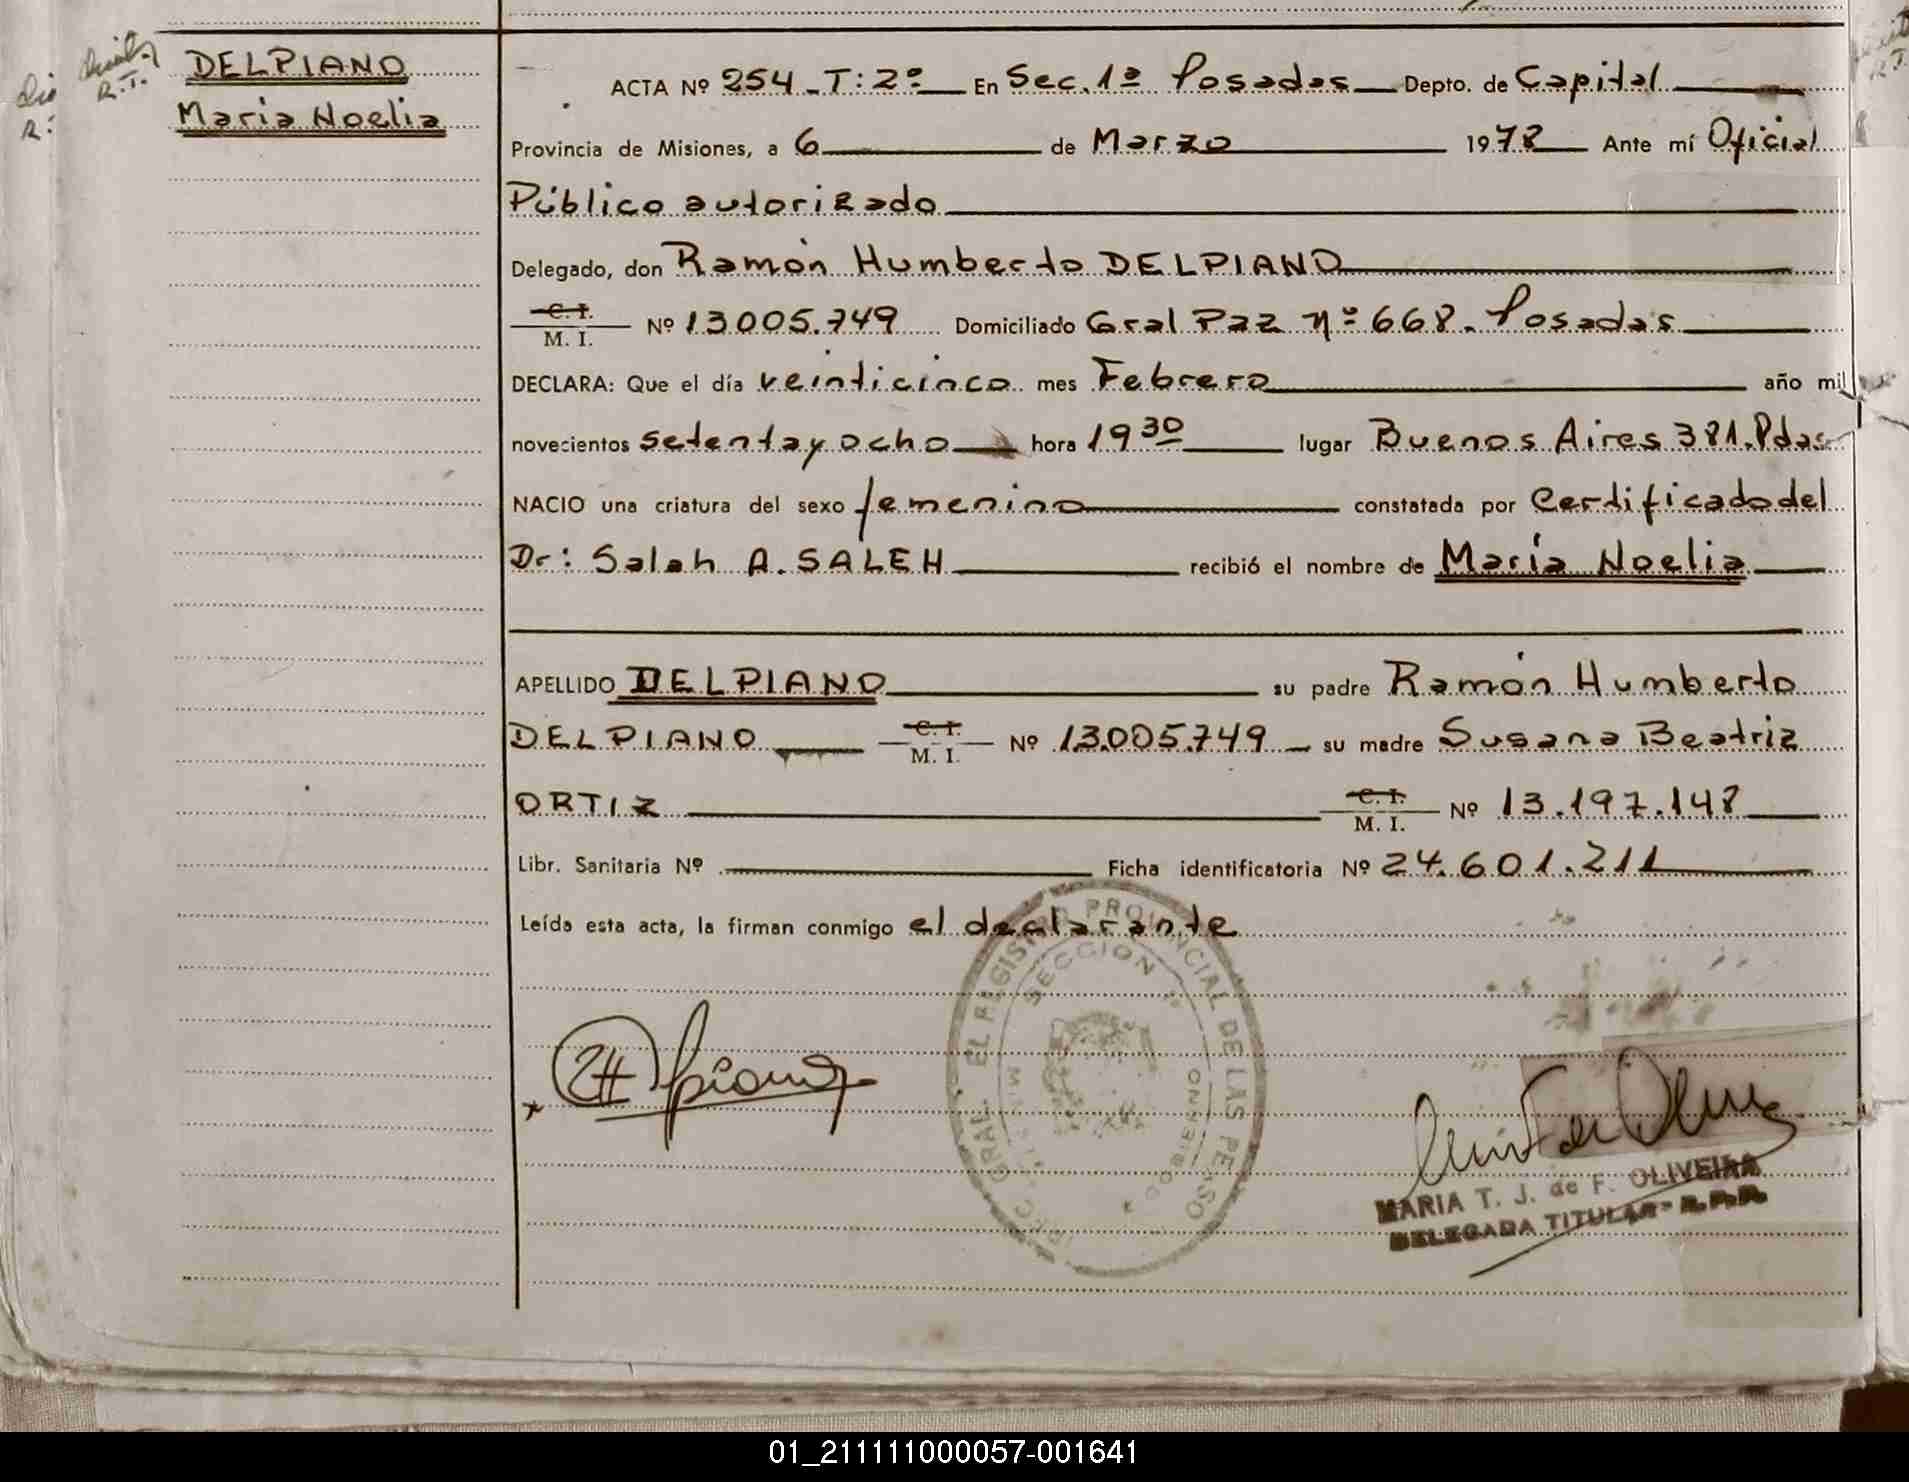 DELPIANO
María Noelia
R.T.
ACTA Nº 254 - T: 2º En Sec. 1ª Posadas Depto. de Capital
Provincia de Misiones, a 6 de Marzo 1978 Ante mí Oficial
Público autorizado
Delegado, don Ramón Humberto DELPIANO
C. I.
M. I. Nº 13005.749 Domiciliado Gral Paz Nº 668. Posadas
DECLARA: Que el día veinticinco mes Febrero año mil
novecientos setenta y ocho hora 19 30 lugar Buenos Aires 381. Pdas
NACIO una criatura del sexo femenino constatada por Certificado del
Dr: Salah A. SALEH recibió el nombre de María Noelia
APELLIDO DELPIANO su padre Ramón Humberto
DELPIANO C. I. M. I. Nº 13.005.749 su madre Susana Beatriz
ORTIZ C. I. M. I. Nº 13.197.148
Libr. Sanitaria Nº Ficha identificatoria Nº 24.601.211
Leída esta acta, la firman conmigo el declarante
GRAL. EL REGISTRO PROVINCIAL DE LAS PERSO
SECCION
GOBIERNO
MARIA T. J. de F. OLIVEIRA
DELEGADA TITULAR - R.P.P.
01_211111000057-001641